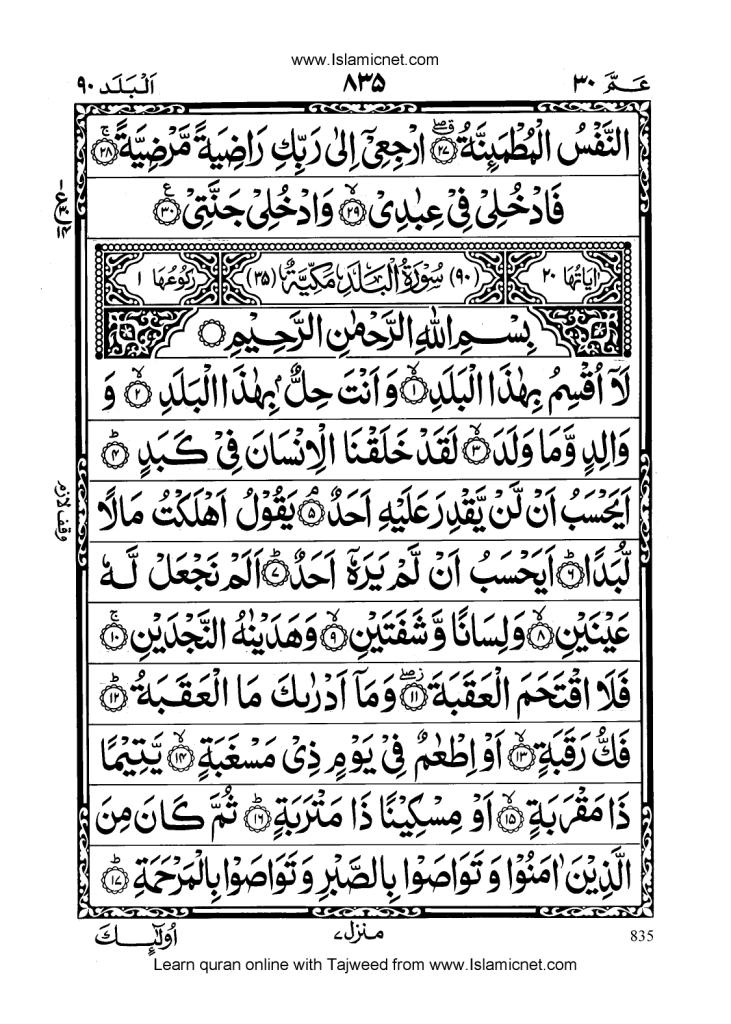 www.Islamicnet.com
عـمّ ٣٠ ٨٣٥ اَلْبَلَد ٩٠
النَّفْسُ الْمُطْمَىِٕنَّةُ ﴿٢٧﴾ ارْجِعِیْۤ اِلٰى رَبِّكِ رَاضِیَةً مَّرْضِیَّةً ﴿٢٨﴾
فَادْخُلِیْ فِیْ عِبٰدِیْ ﴿٢٩﴾ وَادْخُلِیْ جَنَّتِیْ ﴿٣٠﴾
اٰیَاتُهَا ٢٠ (٩٠) سُوْرَةُ الْبَلَدِ مَكِّیَّةٌ (٣٥) رُكُوْعُهَا ١
بِسْمِ اللّٰهِ الرَّحْمٰنِ الرَّحِیْمِ
لَاۤ اُقْسِمُ بِهٰذَا الْبَلَدِ ﴿١﴾ وَاَنْتَ حِلٌّۢ بِهٰذَا الْبَلَدِ ﴿٢﴾ وَ
وَالِدٍ وَّمَا وَلَدَ ﴿٣﴾ لَقَدْ خَلَقْنَا الْاِنْسَانَ فِیْ كَبَدٍ ﴿٤﴾
اَیَحْسَبُ اَنْ لَّنْ یَّقْدِرَ عَلَیْهِ اَحَدٌ ﴿٥﴾ یَقُوْلُ اَهْلَكْتُ مَالًا
لُّبَدًا ﴿٦﴾ اَیَحْسَبُ اَنْ لَّمْ یَرَهٗۤ اَحَدٌ ﴿٧﴾ اَلَمْ نَجْعَلْ لَّهٗ
عَیْنَیْنِ ﴿٨﴾ وَلِسَانًا وَّشَفَتَیْنِ ﴿٩﴾ وَهَدَیْنٰهُ النَّجْدَیْنِ ﴿١٠﴾
فَلَا اقْتَحَمَ الْعَقَبَةَ ﴿١١﴾ وَمَاۤ اَدْرٰىكَ مَا الْعَقَبَةُ ﴿١٢﴾
فَكُّ رَقَبَةٍ ﴿١٣﴾ اَوْ اِطْعٰمٌ فِیْ یَوْمٍ ذِیْ مَسْغَبَةٍ ﴿١٤﴾ یَّتِیْمًا
ذَا مَقْرَبَةٍ ﴿١٥﴾ اَوْ مِسْكِیْنًا ذَا مَتْرَبَةٍ ﴿١٦﴾ ثُمَّ كَانَ مِنَ
الَّذِیْنَ اٰمَنُوْا وَتَوَاصَوْا بِالصَّبْرِ وَتَوَاصَوْا بِالْمَرْحَمَةِ ﴿١٧﴾
وقف لازم
835 منزل٧ اُولٰٓىِٕكَ
Learn quran online with Tajweed from www.Islamicnet.com